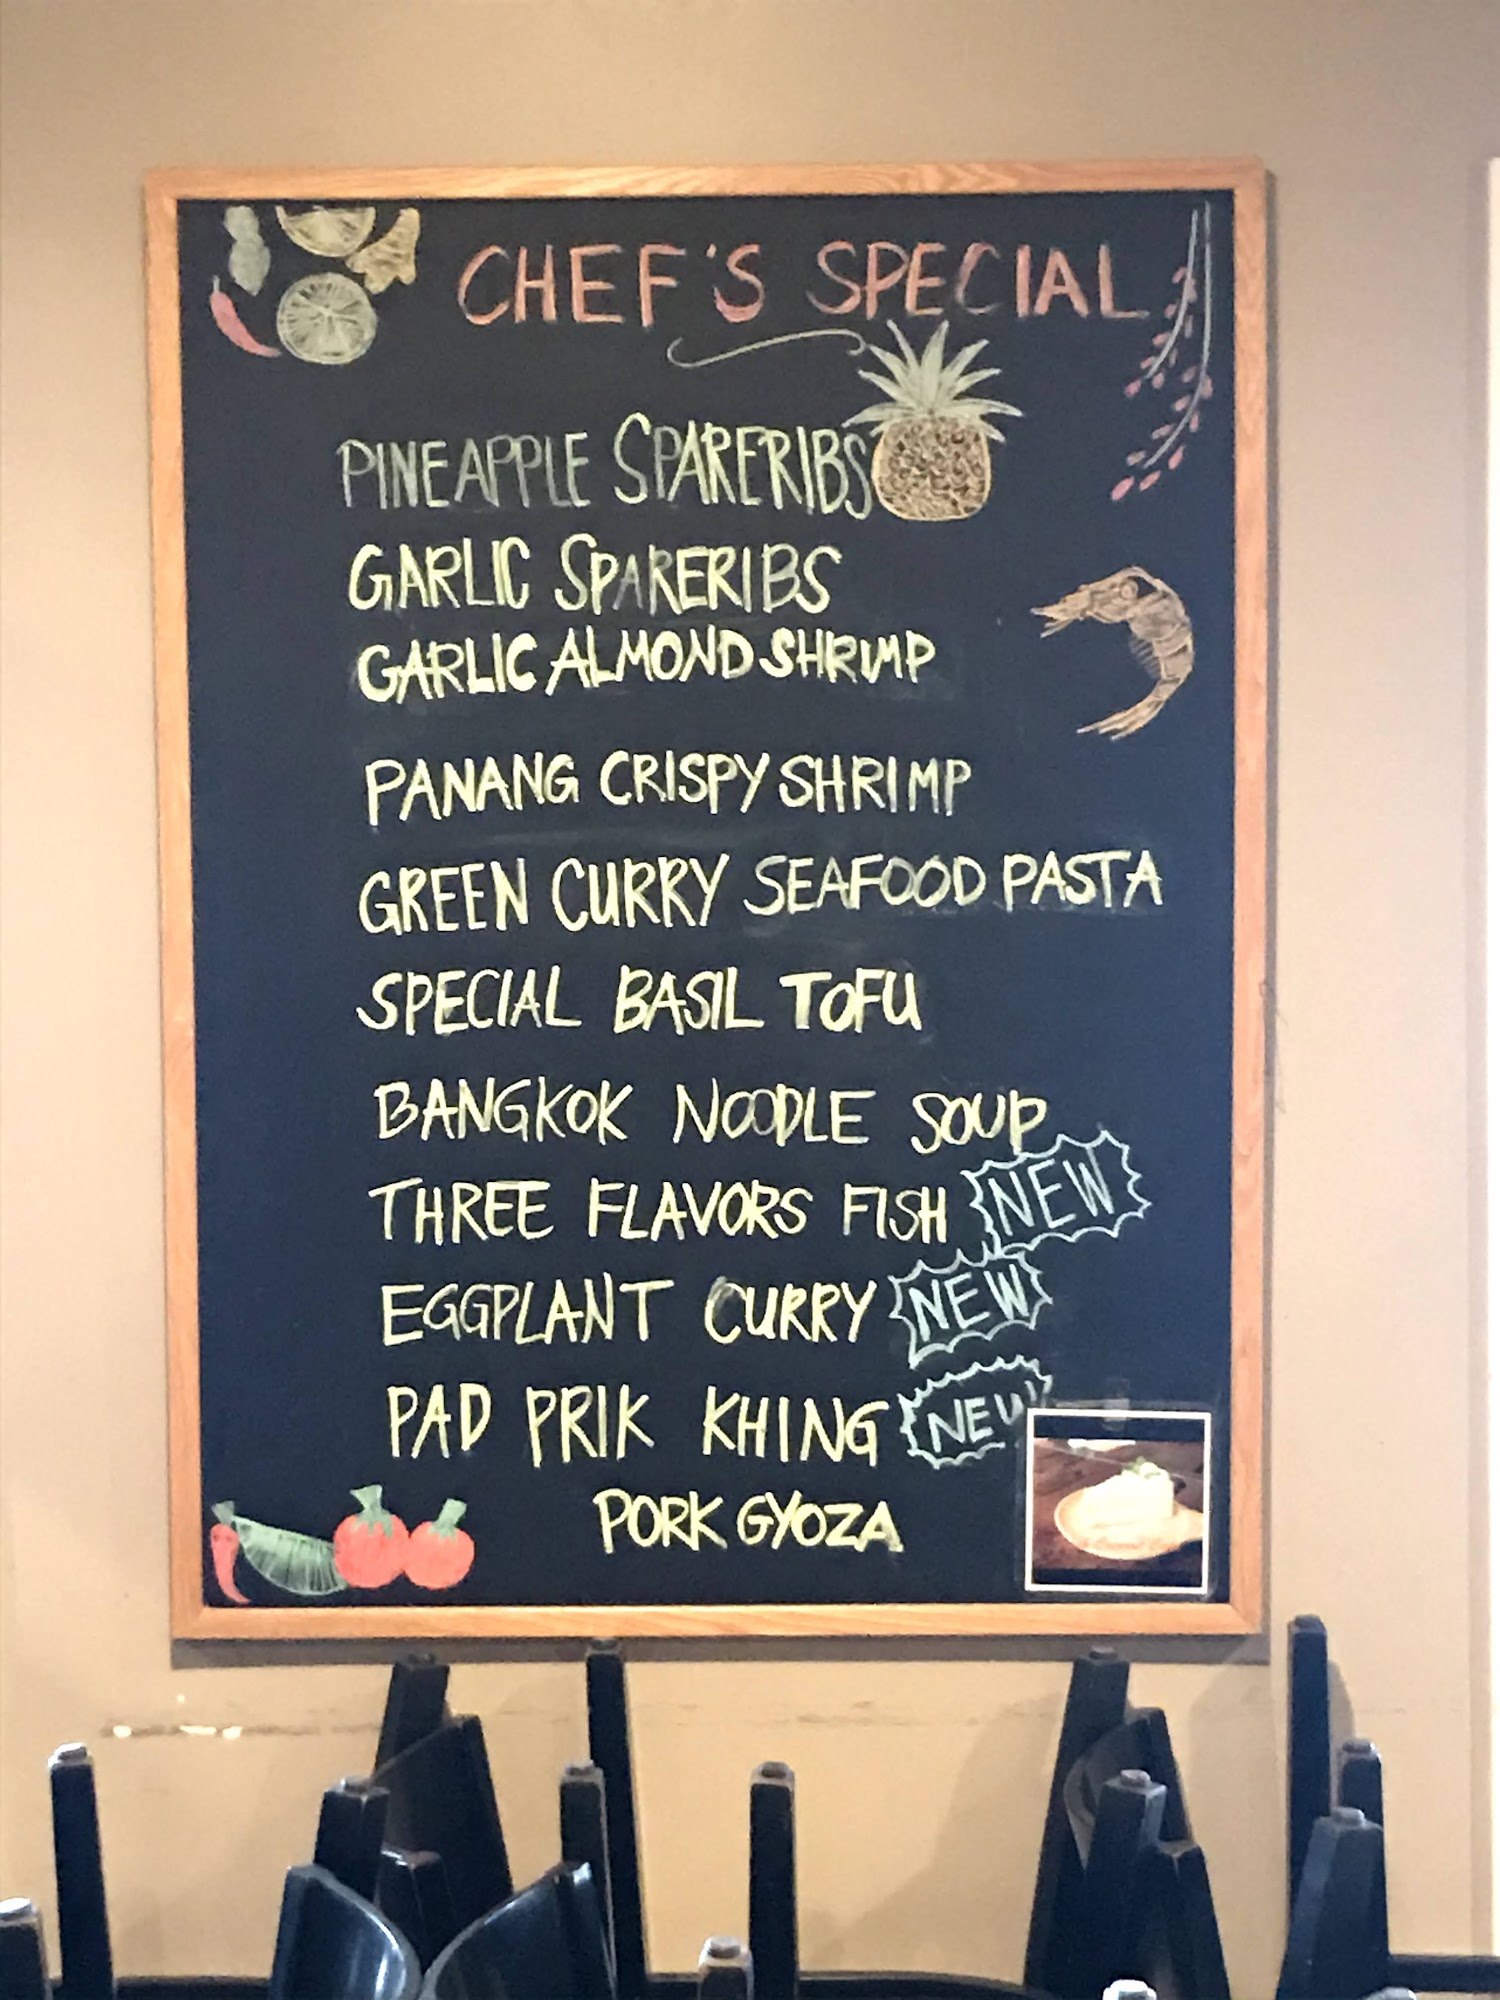 CHEF'S SPECIAL
PINEAPPLE SPARERIBS
GARLIC SPARERIBS
GARLIC ALMOND SHRIMP
PANANG CRISPY SHRIMP
GREEN CURRY SEAFOOD PASTA
SPECIAL BASIL TOFU
BANGKOK NOODLE SOUP
THREE FLAVORS FISH NEW
EGGPLANT CURRY NEW
PAD PRIK KHING NEW
PORK GYOZA